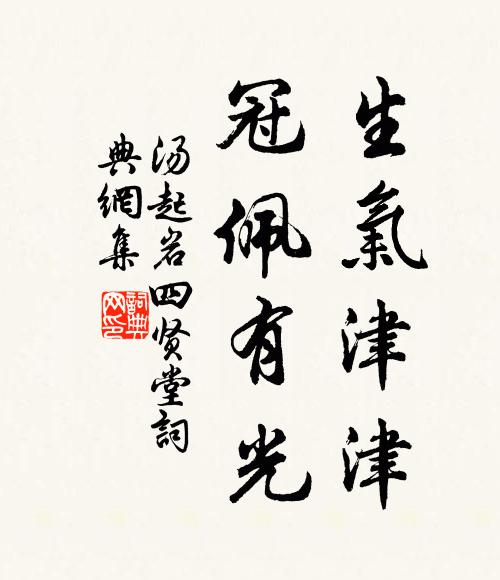 生氣津津
冠佩有光
汤起岩四贤堂詞
典網集
詞典
网印